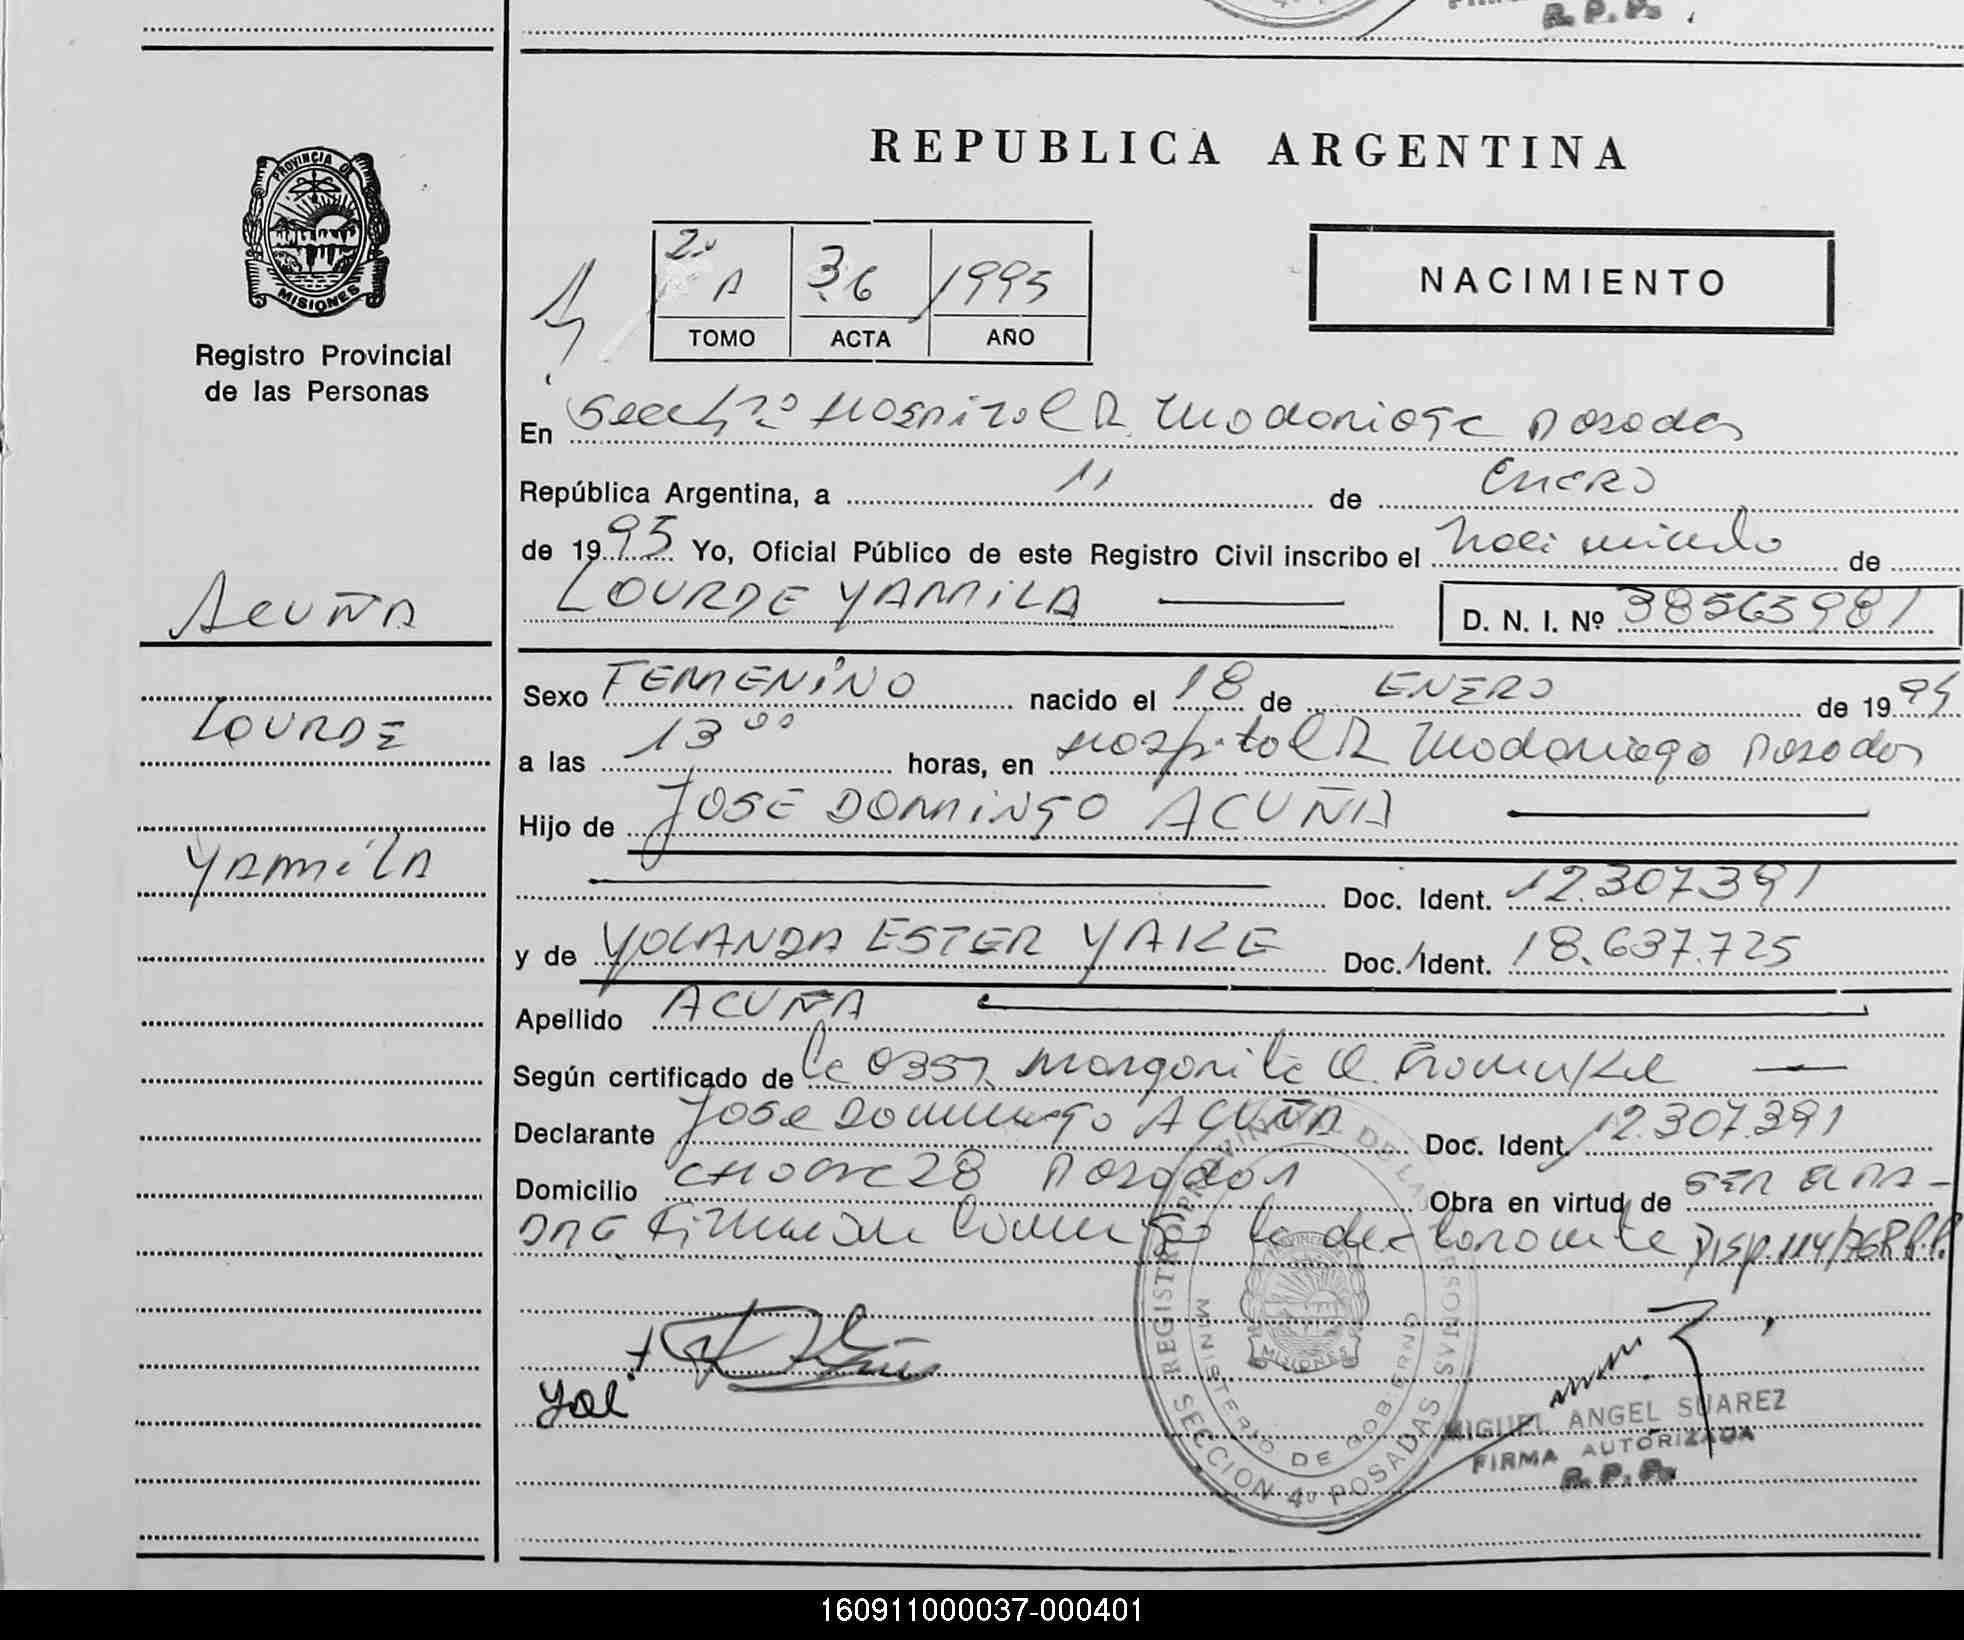 R. P. Ps.
PROVINCIA DE
MISIONES
Registro Provincial
de las Personas
REPUBLICA ARGENTINA
2º A 36 1995
TOMO ACTA AÑO
NACIMIENTO
En Secc 4ª Hospital R. Madariaga Posadas
República Argentina, a 11 de Enero
de 1995 Yo, Oficial Público de este Registro Civil inscribo el Nacimiento de
LOURDE YAMILA D. N. I. Nº 38565981
ACUÑA
LOURDE
YAMILA
Sexo FEMENINO nacido el 18 de ENERO de 1994
a las 13 00 horas, en Hospital R Madariaga Posadas
Hijo de JOSE DOMINGO ACUÑA
Doc. Ident. 12.307.391
y de YOLANDA ESTER YAKE Doc. Ident. 18.637.725
Apellido ACUÑA
Según certificado de la Obst. Margarita
Declarante Jose Domingo ACUÑA Doc. Ident. 12.307.391
Domicilio 28 Posadas Obra en virtud de SER EL PA-
DRE Firman conmigo la declarante Disp. 114/76R.P.P.
Yol
REGISTRO PROVINCIAL DE LAS PERSONAS
MINISTERIO DE GOBIERNO
PROVINCIA
MISIONES
SECCION 4º POSADAS
MIGUEL ANGEL SUAREZ
FIRMA AUTORIZADA
R. P. Ps.
160911000037-000401